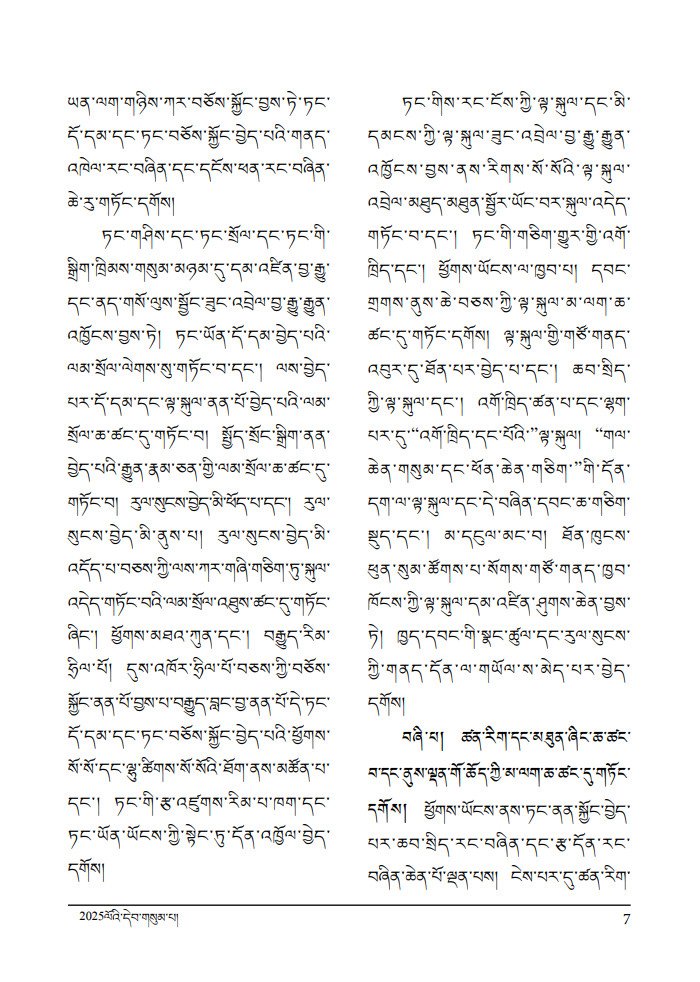 ཡན་ལག་གཉིས་ཀར་བཅོས་སྐྱོང་བྱས་ཏེ་ཏང་
དོ་དམ་དང་ཏང་བཅོས་སྐྱོང་བྱེད་པའི་གནད་
འཁེལ་རང་བཞིན་དང་དངོས་ཕན་རང་བཞིན་
ཆེ་རུ་གཏོང་དགོས།
ཏང་གཤིས་དང་ཏང་སྲོལ་དང་ཏང་གི་
སྒྲིག་ཁྲིམས་གསུམ་མཉམ་དུ་དམ་འཛིན་བྱ་རྒྱུ་
དང་ནད་གསོ་ལུས་སྦྱོང་ཟུང་འབྲེལ་བྱ་རྒྱུ་རྒྱུན་
འཁྱོངས་བྱས་ཏེ། ཏང་ཡོན་དོ་དམ་བྱེད་པའི་
ལམ་སྲོལ་ལེགས་སུ་གཏོང་བ་དང་། ལས་བྱེད་
པར་དོ་དམ་དང་ལྟ་སྐུལ་ནན་པོ་བྱེད་པའི་ལམ་
སྲོལ་ཆ་ཚང་དུ་གཏོང་བ། སྤྱོད་སྲོང་སྒྲིག་ནན་
བྱེད་པའི་རྒྱུན་རྣམ་ཅན་གྱི་ལམ་སྲོལ་ཆ་ཚང་དུ་
གཏོང་བ། རུལ་སུངས་བྱེད་མི་ཕོད་པ་དང་། རུལ་
སུངས་བྱེད་མི་ནུས་པ། རུལ་སུངས་བྱེད་མི་
འདོད་པ་བཅས་ཀྱི་ལས་ཀར་གཞི་གཅིག་ཏུ་སྐུལ་
འདེད་གཏོང་བའི་ལམ་སྲོལ་འཐུས་ཚང་དུ་གཏོང་
ཞིང་། ཕྱོགས་མཐའ་ཀུན་དང་། བརྒྱུད་རིམ་
ཧྲིལ་པོ། དུས་འཁོར་ཧྲིལ་པོ་བཅས་ཀྱི་བཅོས་
སྐྱོང་ནན་པོ་བྱས་པ་བརྒྱུད་བླང་བྱ་ནན་པོ་དེ་ཏང་
དོ་དམ་དང་ཏང་བཅོས་སྐྱོང་བྱེད་པའི་ཕྱོགས་
སོ་སོ་དང་ལྷུ་ཚིགས་སོ་སོའི་ཐོག་ནས་མཚོན་པ་
དང་། ཏང་གི་རྩ་འཛུགས་རིམ་པ་ཁག་དང་
ཏང་ཡོན་ཡོངས་ཀྱི་སྟེང་ཏུ་དོན་འཁྱོལ་བྱེད་
དགོས།
ཏང་གིས་རང་ངོས་ཀྱི་ལྟ་སྐུལ་དང་མི་
དམངས་ཀྱི་ལྟ་སྐུལ་ཟུང་འབྲེལ་བྱ་རྒྱུ་རྒྱུན་
འཁྱོངས་བྱས་ནས་རིགས་སོ་སོའི་ལྟ་སྐུལ་
འབྲེལ་མཐུད་མཐུན་སྦྱོར་ཡོང་བར་སྐུལ་འདེད་
གཏོང་བ་དང་། ཏང་གི་གཅིག་གྱུར་གྱི་འགོ་
ཁྲིད་དང་། ཕྱོགས་ཡོངས་ལ་ཁྱབ་པ། དབང་
གྲགས་ནུས་ཆེ་བཅས་ཀྱི་ལྟ་སྐུལ་མ་ལག་ཆ་
ཚང་དུ་གཏོང་དགོས། ལྟ་སྐུལ་གྱི་གཙོ་གནད་
འབུར་དུ་ཐོན་པར་བྱེད་པ་དང་། ཆབ་སྲིད་
ཀྱི་ལྟ་སྐུལ་དང་། འགོ་ཁྲིད་ཚན་པ་དང་ལྷག་
པར་དུ་“འགོ་ཁྲིད་དང་པོའི་”ལྟ་སྐུལ། “གལ་
ཆེན་གསུམ་དང་ཕོན་ཆེན་གཅིག་”གི་དོན་
དག་ལ་ལྟ་སྐུལ་དང་དེ་བཞིན་དབང་ཆ་གཅིག་
སྡུད་དང་། མ་དངུལ་མང་བ། ཐོན་ཁུངས་
ཕུན་སུམ་ཚོགས་པ་སོགས་གཙོ་གནད་ཁྱབ་
ཁོངས་ཀྱི་ལྟ་སྐུལ་དམ་འཛིན་ཤུགས་ཆེན་བྱས་
ཏེ། ཁྱད་དབང་གི་སྣང་ཚུལ་དང་རུལ་སུངས་
ཀྱི་གནད་དོན་ལ་གཡོལ་ས་མེད་པར་བྱེད་
དགོས།
བཞི་པ། ཚན་རིག་དང་མཐུན་ཞིང་ཆ་ཚང་
བ་དང་ནུས་ལྡན་གོ་ཆོད་ཀྱི་མ་ལག་ཆ་ཚང་དུ་གཏོང་
དགོས། ཕྱོགས་ཡོངས་ནས་ཏང་ནན་སྐྱོང་བྱེད་
པར་ཆབ་སྲིད་རང་བཞིན་དང་རྩ་དོན་རང་
བཞིན་ཆེན་པོ་ལྡན་པས། ངེས་པར་དུ་ཚན་རིག་
2025ལོའི་དེབ་གསུམ་པ།
7